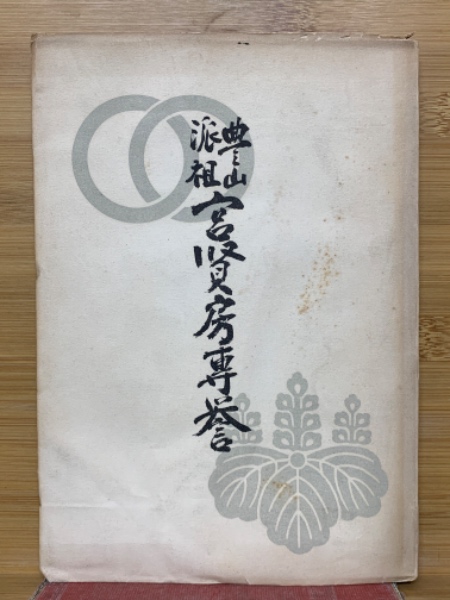 豊山
派祖
宮賢房専誉